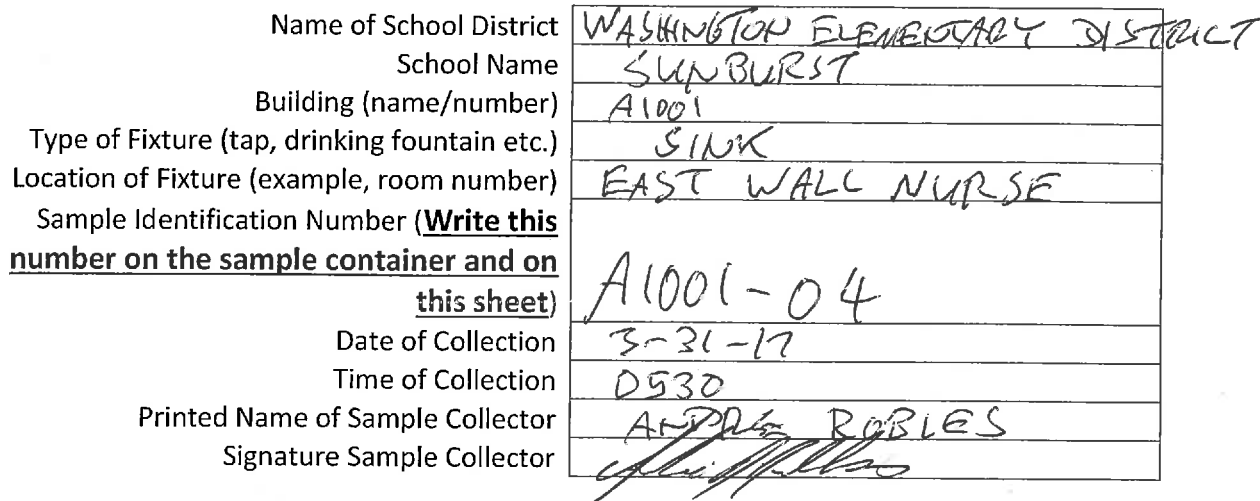 Name of School District WASHINGTON ELEMENTARY DISTRICT
School Name SUNBURST
Building (name/number) A1001
Type of Fixture (tap, drinking fountain etc.) SINK
Location of Fixture (example, room number) EAST WALL NURSE
Sample Identification Number (Write this
number on the sample container and on
this sheet) A1001-04
Date of Collection 3-31-17
Time of Collection 0530
Printed Name of Sample Collector ROBLES
Signature Sample Collector